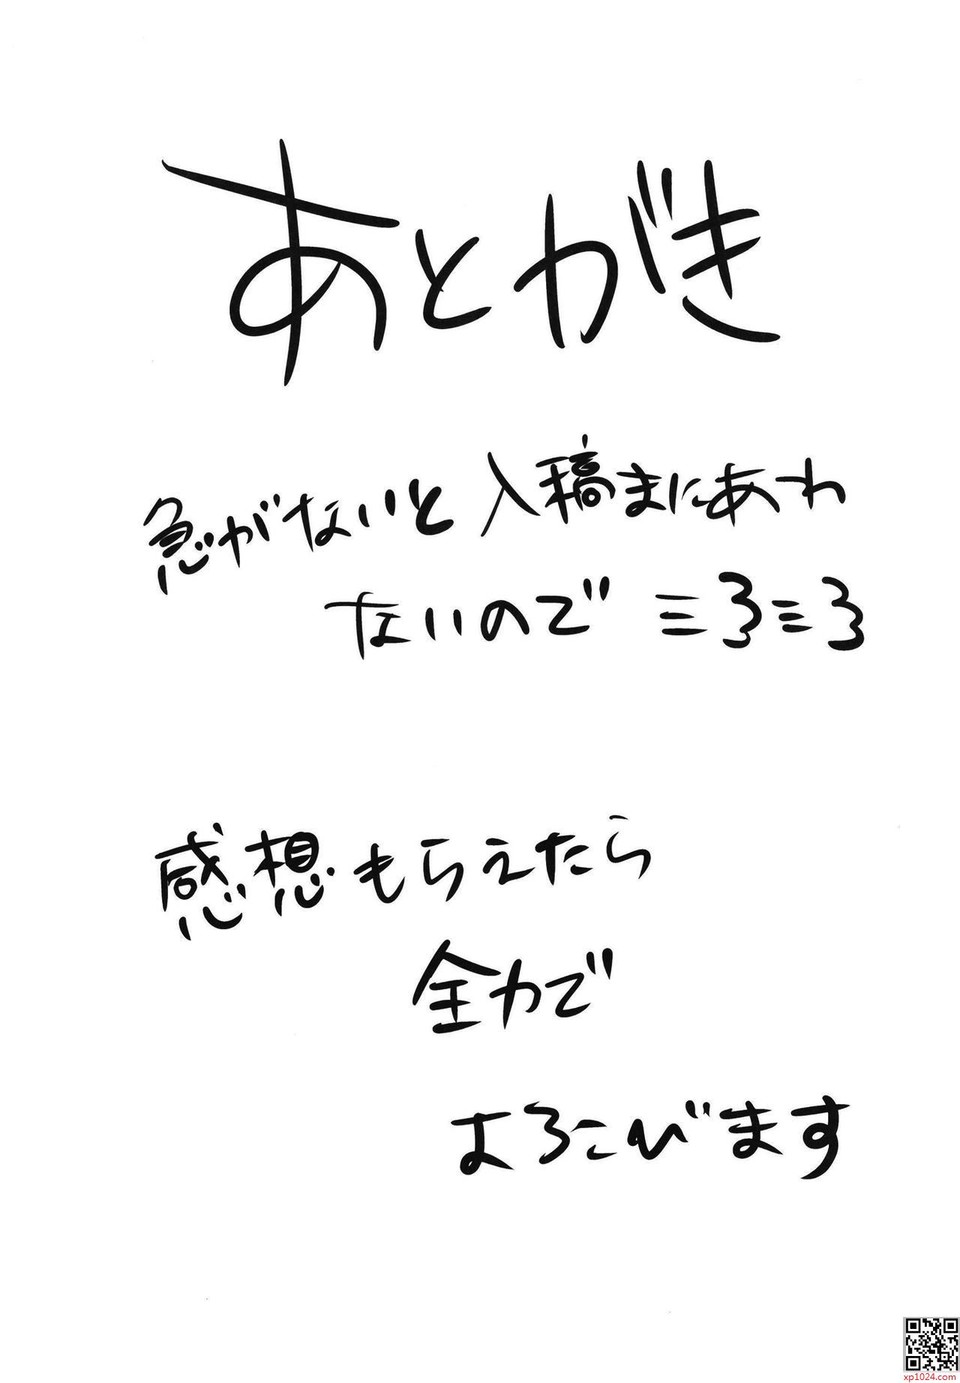 あとがき
急がないと入稿まにあわ
ないので ミ3ミ3
感想もらえたら
全力で
よろこびます
xp1024.com